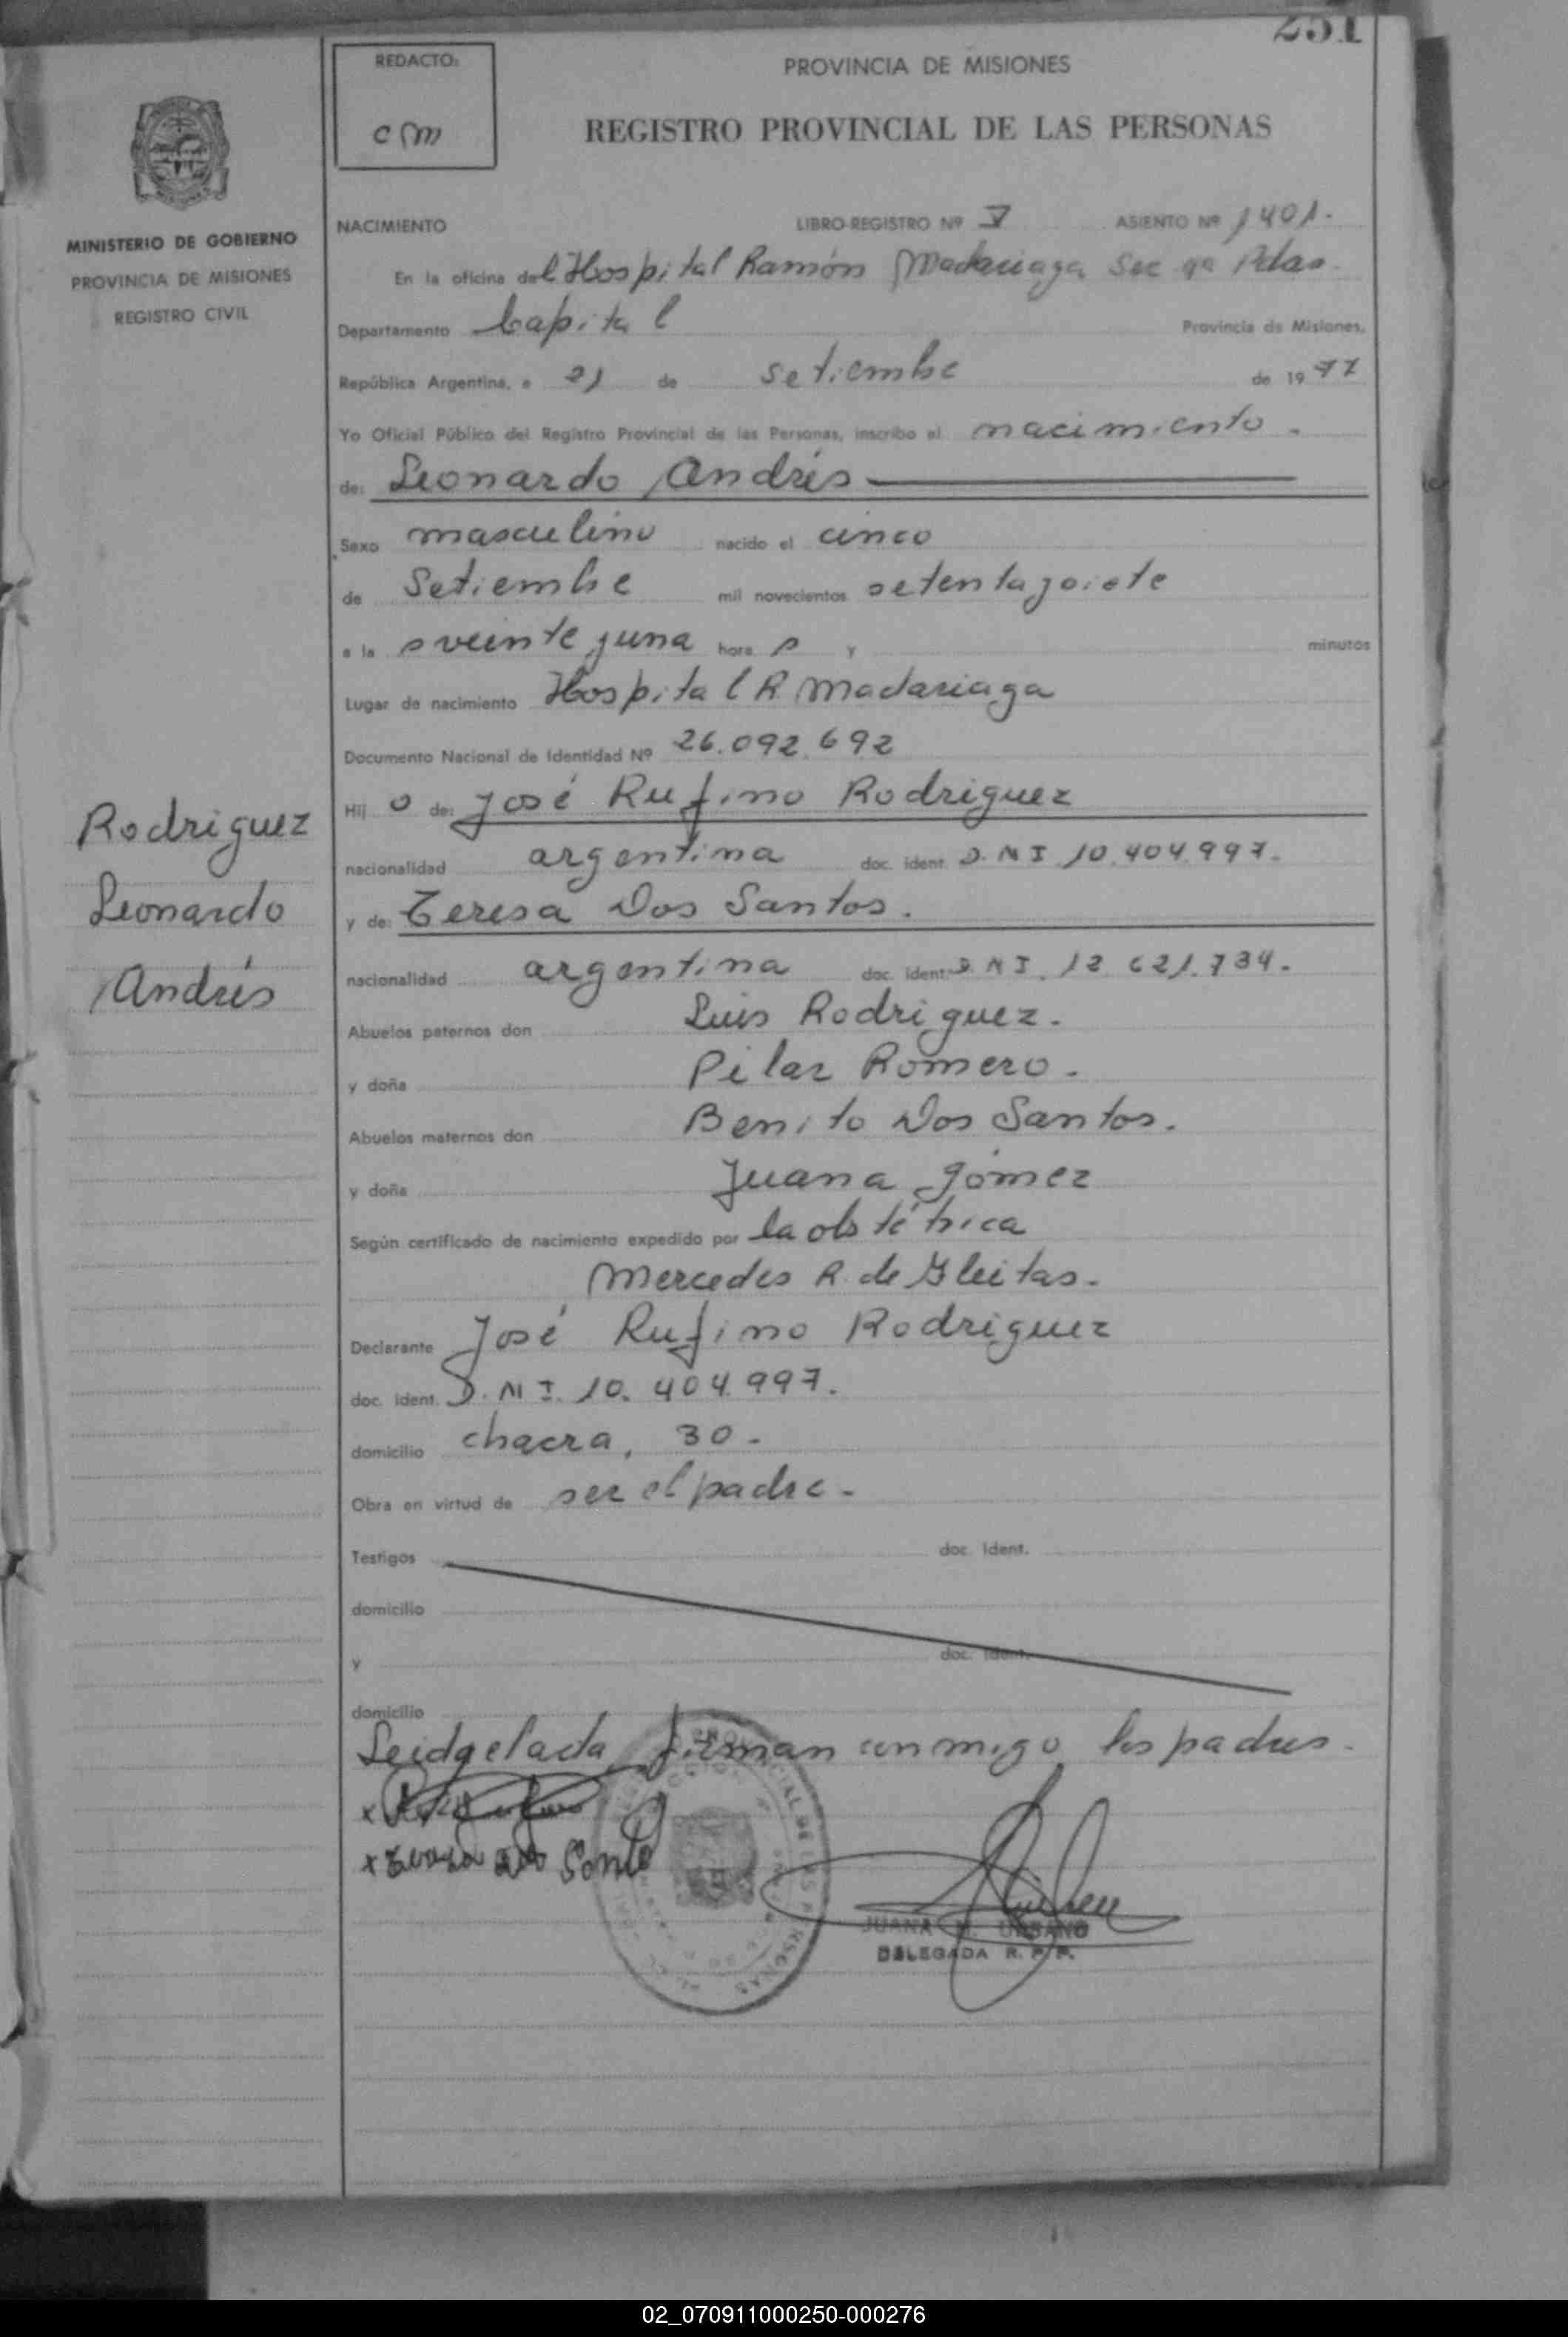 251
REDACTO:
crm
PROVINCIA DE MISIONES
REGISTRO PROVINCIAL DE LAS PERSONAS
MINISTERIO DE GOBIERNO
PROVINCIA DE MISIONES
REGISTRO CIVIL
NACIMIENTO LIBRO-REGISTRO Nº V ASIENTO Nº 1401.
En la oficina del Hospital Ramón Madariaga Sec 9a Pdas.
Departamento Capital Provincia de Misiones,
República Argentina, a 21 de setiembre de 1977
Yo Oficial Público del Registro Provincial de las Personas, inscribo el nacimiento.
de: Leonardo Andrés
Sexo masculino nacido el cinco
de Setiembre mil novecientos setenta y siete
a la s veinte y una hora s y minutos
Lugar de nacimiento Hospital R Madariaga
Documento Nacional de Identidad Nº 26.092.692
Hij o de: José Rufino Rodriguez
nacionalidad argentina doc. ident. D.N I 10.404.997.
y de: Teresa Dos Santos.
nacionalidad argentina doc. ident. D N I. 12 621.734.
Abuelos paternos don Luis Rodriguez.
y doña Pilar Romero.
Abuelos maternos don Benito Dos Santos.
y doña Juana Gómez
Según certificado de nacimiento expedido por la obstétrica
Mercedes R. de Gleitas.
Declarante José Rufino Rodriguez
doc. ident. D. N I. 10. 404.997.
domicilio chacra, 30.
Obra en virtud de ser el padre.
Testigos doc. ident.
domicilio
y doc. ident.
domicilio
Leida el acta, firman conmigo los padres.
x
x Teresa Dos Santo
JUANA URBANO
DELEGADA R. P. P.
Rodriguez
Leonardo
Andrés
02_070911000250-000276